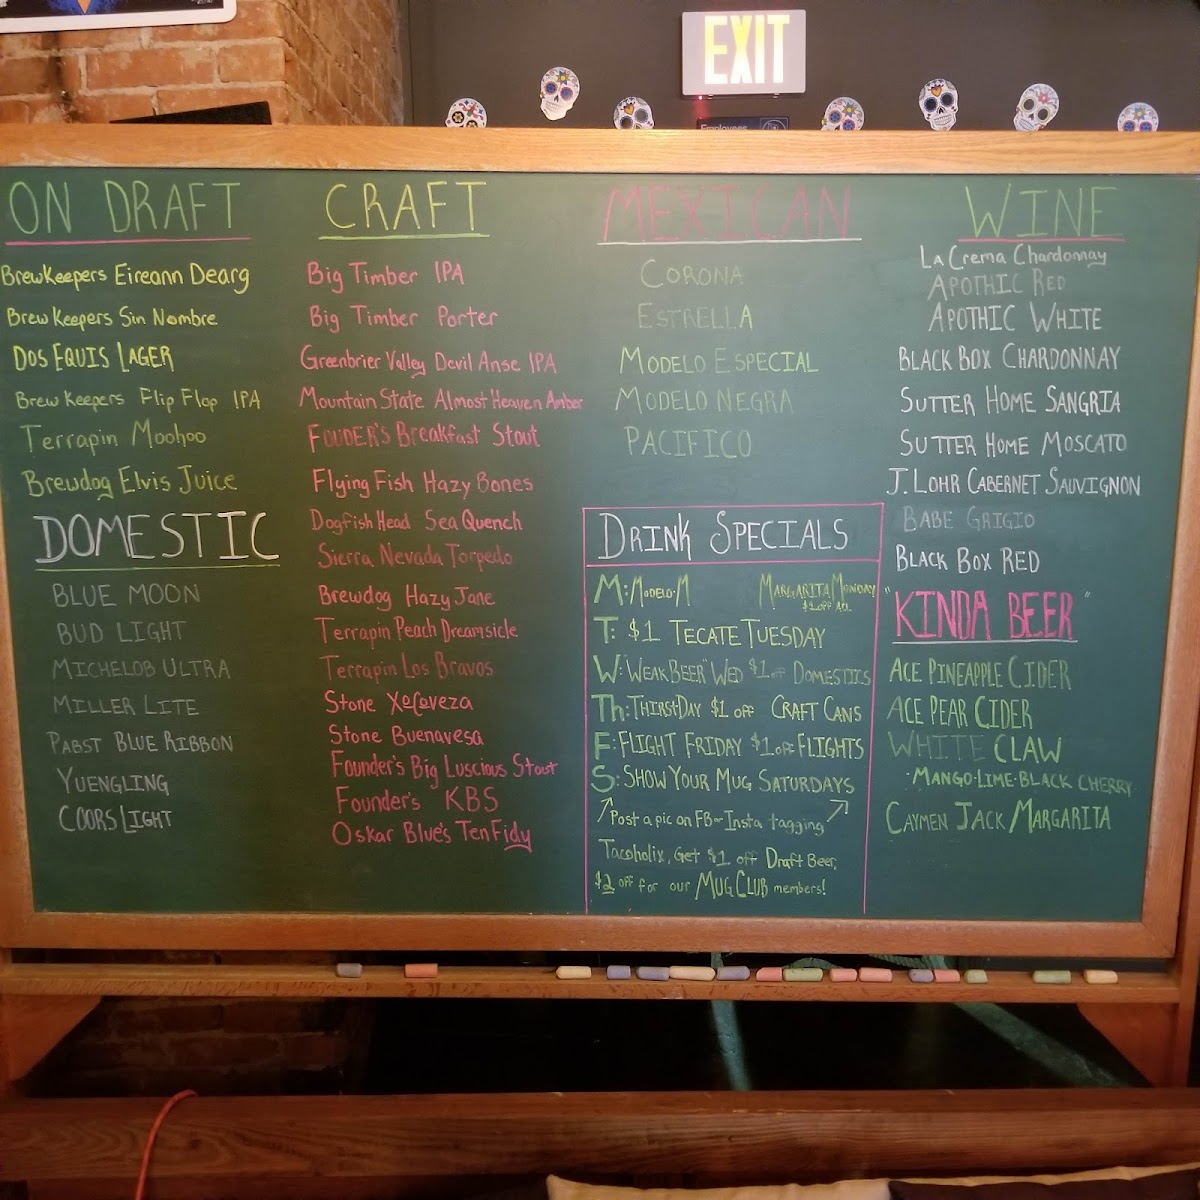 EXIT
Employees
ON DRAFT
BrewKeepers Eireann Dearg
Brew Keepers Sin Nombre
DOS EQUIS LAGER
Brew Keepers Flip Flop IPA
Terrapin Moohoo
Brewdog Elvis Juice
DOMESTIC
BLUE MOON
BUD LIGHT
MICHELOB ULTRA
MILLER LITE
PABST BLUE RIBBON
YUENGLING
COORS LIGHT
CRAFT
Big Timber IPA
Big Timber Porter
Greenbrier Valley Devil Anse IPA
Mountain State Almost Heaven Amber
FOUDER'S Breakfast Stout
Flying Fish Hazy Bones
Dogfish Head Sea Quench
Sierra Nevada Torpedo
Brewdog Hazy Jane
Terrapin Peach Dreamsicle
Terrapin Los Bravos
Stone Xocoveza
Stone Buenavesa
Founder's Big Luscious Stout
Founder's KBS
Oskar Blue's TenFidy
MEXICAN
CORONA
ESTRELLA
MODELO ESPECIAL
MODELO NEGRA
PACIFICO
DRINK SPECIALS
M: MODELO-M MARGARITA MONDAY
$1 off ALL
T: $1 TECATE TUESDAY
W: "WEAK BEER" WED $1 off DOMESTICS
Th: THIRSTDAY $1 off CRAFT CANS
F: FLIGHT FRIDAY $1 off FLIGHTS
S: SHOW YOUR MUG SATURDAYS
Post a pic on FB or Insta tagging
Tacoholix, Get $1 off Draft Beer,
$2 off for our MUG CLUB members!
WINE
LA Crema Chardonnay
APOTHIC RED
APOTHIC WHITE
BLACK BOX CHARDONNAY
SUTTER HOME SANGRIA
SUTTER HOME MOSCATO
J. LOHR CABERNET SAUVIGNON
BABE GRIGIO
BLACK BOX RED
"KINDA BEER"
ACE PINEAPPLE CIDER
ACE PEAR CIDER
WHITE CLAW
·MANGO·LIME·BLACK CHERRY
CAYMEN JACK MARGARITA